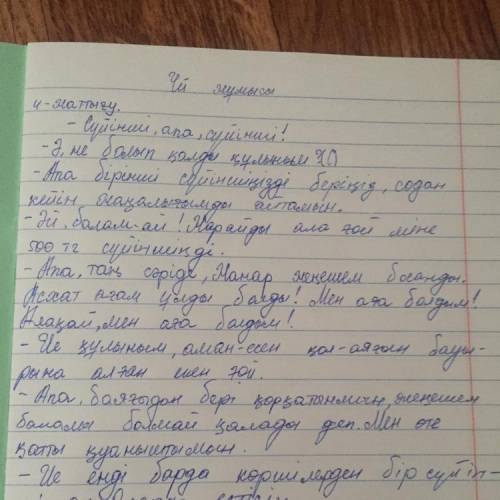 Үй жұмысы
4-жаттығу.
- Сүйінші, апа, сүйінші!
- Ә, не болып қалды құлыным
- Апа бірінші сүйіншіңізді беріңіз, содан
кейін жаңалығымды айтамын.
- Әй, балам-ай! Жарайды ала ғой міне
500 тг сүйіншіңді.
- Апа, таң сәріде, Жанар жеңешем босанды.
Асхат ағам ұлды болды! Мен аға болдым!
Алақай, мен аға болдым!
- Ие құлыным, аман-есен қол-аяғын бауы-
рына алған екен ғой.
- Апа, баяғыдан бері қорқатынмын, жеңешем
балалы болмай қалады деп. Мен өте
қатты қуаныштымын.
- Ие енді барда көршілерден бір сүйін-